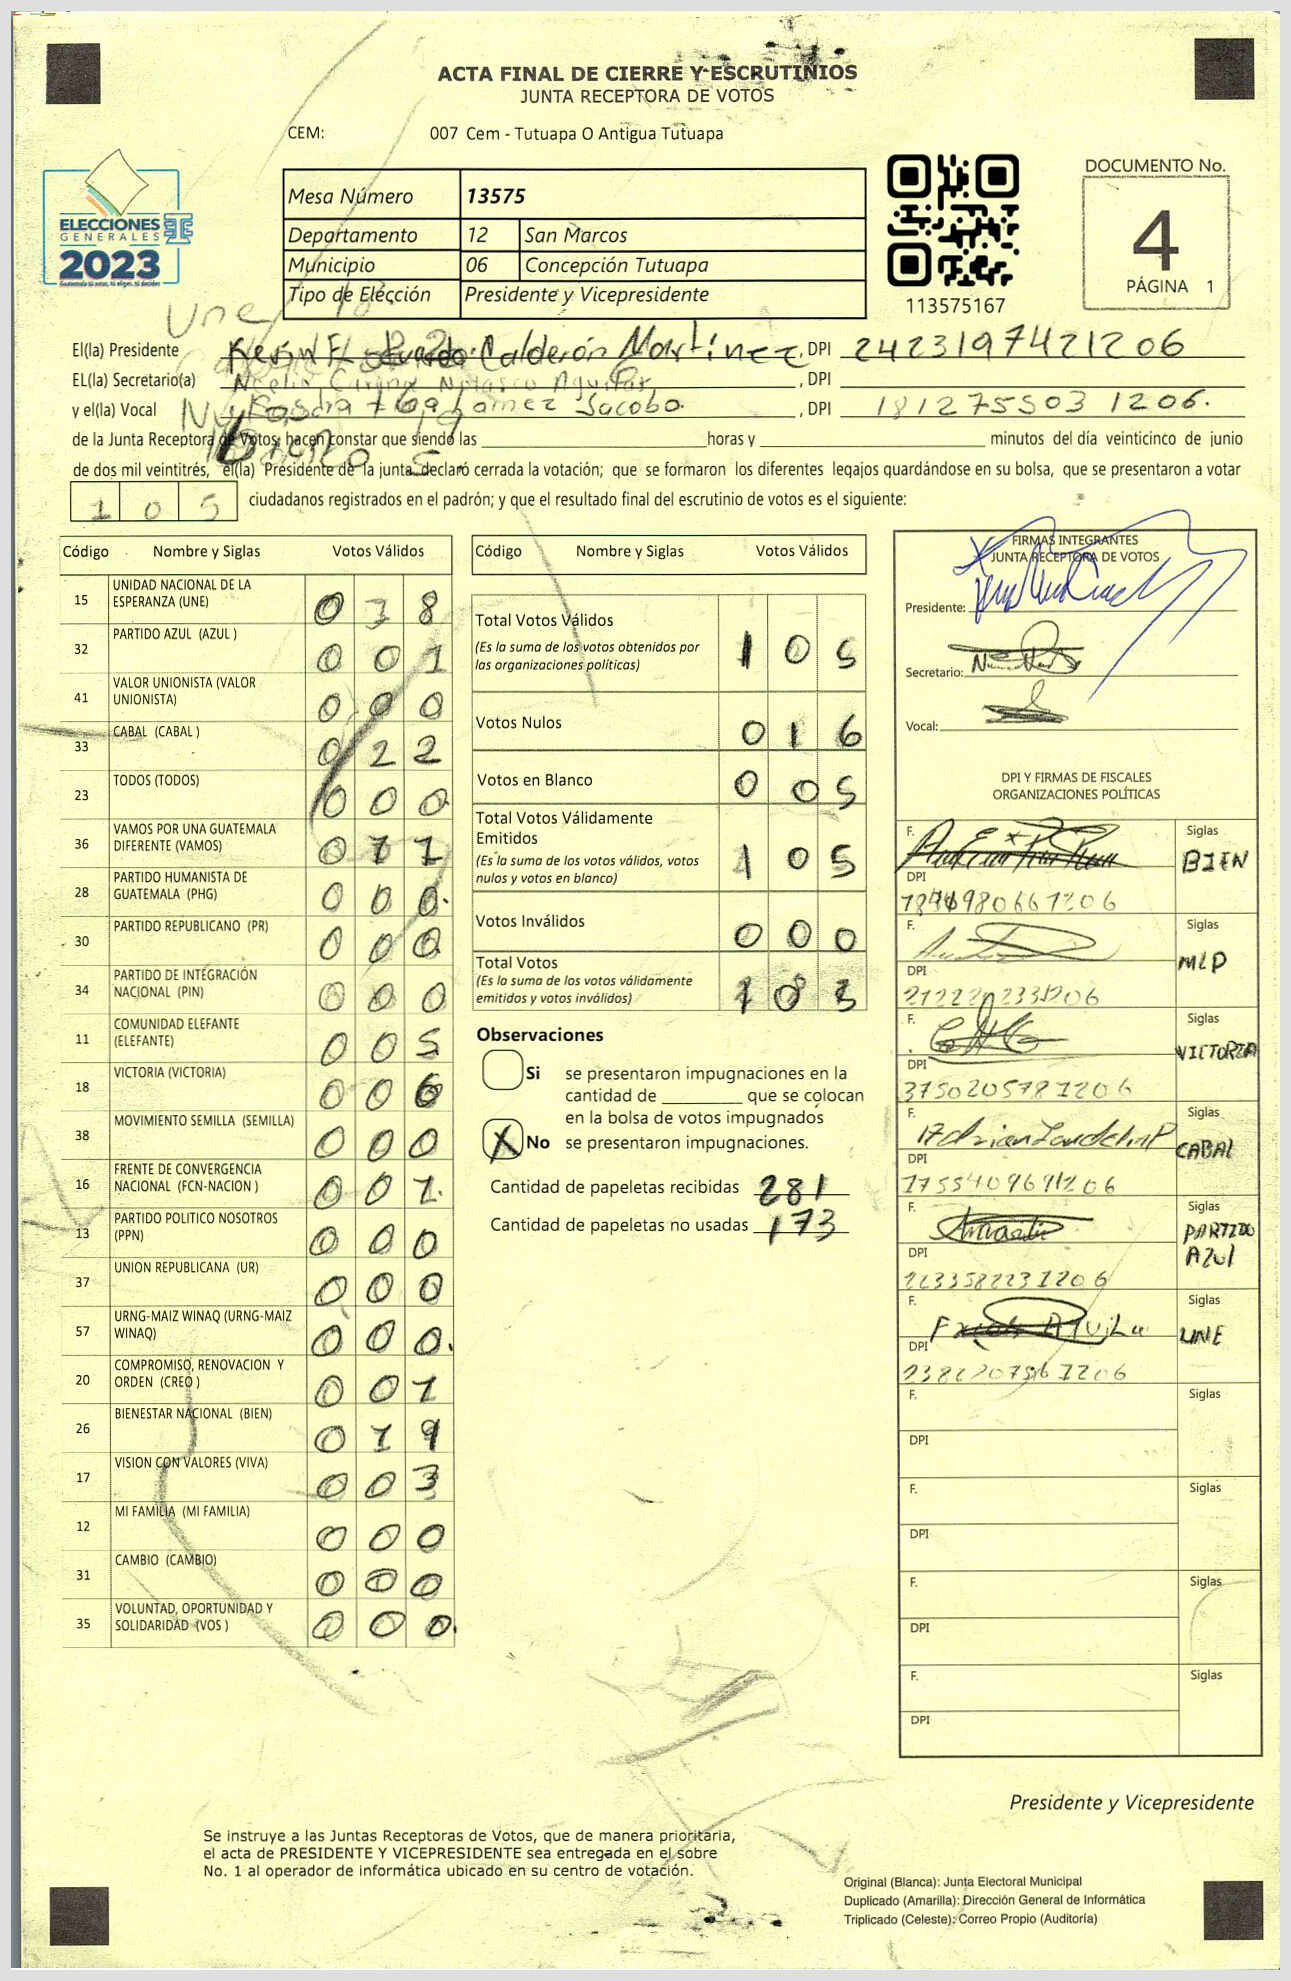 ACTA FINAL DE CIERRE Y ESCRUTINIOS
JUNTA RECEPTORA DE VOTOS
CEM: 007 Cem - Tutuapa O Antigua Tutuapa
ELECCIONES
GENERALES
2023
Mesa Número 13575
Departamento 12 San Marcos
Municipio 06 Concepción Tutuapa
Tipo de Elección Presidente y Vicepresidente
113575167
DOCUMENTO No.
4
PÁGINA 1
Une
El(la) Presidente Calderón Martínez, DPI 2423197421206
EL(la) Secretario(a) , DPI
y el(la) Vocal Jacobo. , DPI 1812755031206.
de la Junta Receptora de Votos, hacen constar que siendo las horas y minutos del día veinticinco de junio
de dos mil veintitrés, el(la) Presidente de la junta declaró cerrada la votación; que se formaron los diferentes legajos quardándose en su bolsa, que se presentaron a votar
105 ciudadanos registrados en el padrón; y que el resultado final del escrutinio de votos es el siguiente:
Código Nombre y Siglas Votos Válidos
15 UNIDAD NACIONAL DE LA ESPERANZA (UNE) 038
32 PARTIDO AZUL (AZUL ) 001
41 VALOR UNIONISTA (VALOR UNIONISTA) 000
33 CABAL (CABAL ) 022
23 TODOS (TODOS) 000
36 VAMOS POR UNA GUATEMALA DIFERENTE (VAMOS) 011
28 PARTIDO HUMANISTA DE GUATEMALA (PHG) 000.
30 PARTIDO REPUBLICANO (PR) 000
34 PARTIDO DE INTEGRACIÓN NACIONAL (PIN) 000
11 COMUNIDAD ELEFANTE (ELEFANTE) 005
18 VICTORIA (VICTORIA) 006
38 MOVIMIENTO SEMILLA (SEMILLA) 000
16 FRENTE DE CONVERGENCIA NACIONAL (FCN-NACION ) 001.
13 PARTIDO POLITICO NOSOTROS (PPN) 000
37 UNION REPUBLICANA (UR) 000
57 URNG-MAIZ WINAQ (URNG-MAIZ WINAQ) 000.
20 COMPROMISO, RENOVACION Y ORDEN (CREO ) 001
26 BIENESTAR NACIONAL (BIEN) 019
17 VISION CON VALORES (VIVA) 003
12 MI FAMILIA (MI FAMILIA) 000
31 CAMBIO (CAMBIO) 000
35 VOLUNTAD, OPORTUNIDAD Y SOLIDARIDAD (VOS ) 000.
Código Nombre y Siglas Votos Válidos
Total Votos Válidos 105
(Es la suma de los votos obtenidos por
las organizaciones políticas)
Votos Nulos 016
Votos en Blanco 005
Total Votos Válidamente
Emitidos 105
(Es la suma de los votos válidos, votos
nulos y votos en blanco)
Votos Inválidos 000
Total Votos
(Es la suma de los votos válidamente
emitidos y votos inválidos)
Observaciones
Si se presentaron impugnaciones en la
cantidad de que se colocan
en la bolsa de votos impugnados
X No se presentaron impugnaciones.
Cantidad de papeletas recibidas 281
Cantidad de papeletas no usadas 173
FIRMAS INTEGRANTES
JUNTA RECEPTORA DE VOTOS
Presidente:
Secretario:
Vocal:
DPI Y FIRMAS DE FISCALES
ORGANIZACIONES POLÍTICAS
F. Siglas
BIEN
DPI
F. Siglas
MLP
DPI
F. Siglas
VICTORIA
DPI
3750205781206
F. Siglas
CABAL
DPI
1755409691206
F. Siglas
PARTIDO
AZUL
DPI
2233582231206
F. Siglas
UNE
DPI
F. Siglas
DPI
F. Siglas
DPI
F. Siglas
DPI
F. Siglas
DPI
Presidente y Vicepresidente
Se instruye a las Juntas Receptoras de Votos, que de manera prioritaria,
el acta de PRESIDENTE Y VICEPRESIDENTE sea entregada en el sobre
No. 1 al operador de informática ubicado en su centro de votación.
Original (Blanca): Junta Electoral Municipal
Duplicado (Amarilla): Dirección General de Informática
Triplicado (Celeste): Correo Propio (Auditoría)